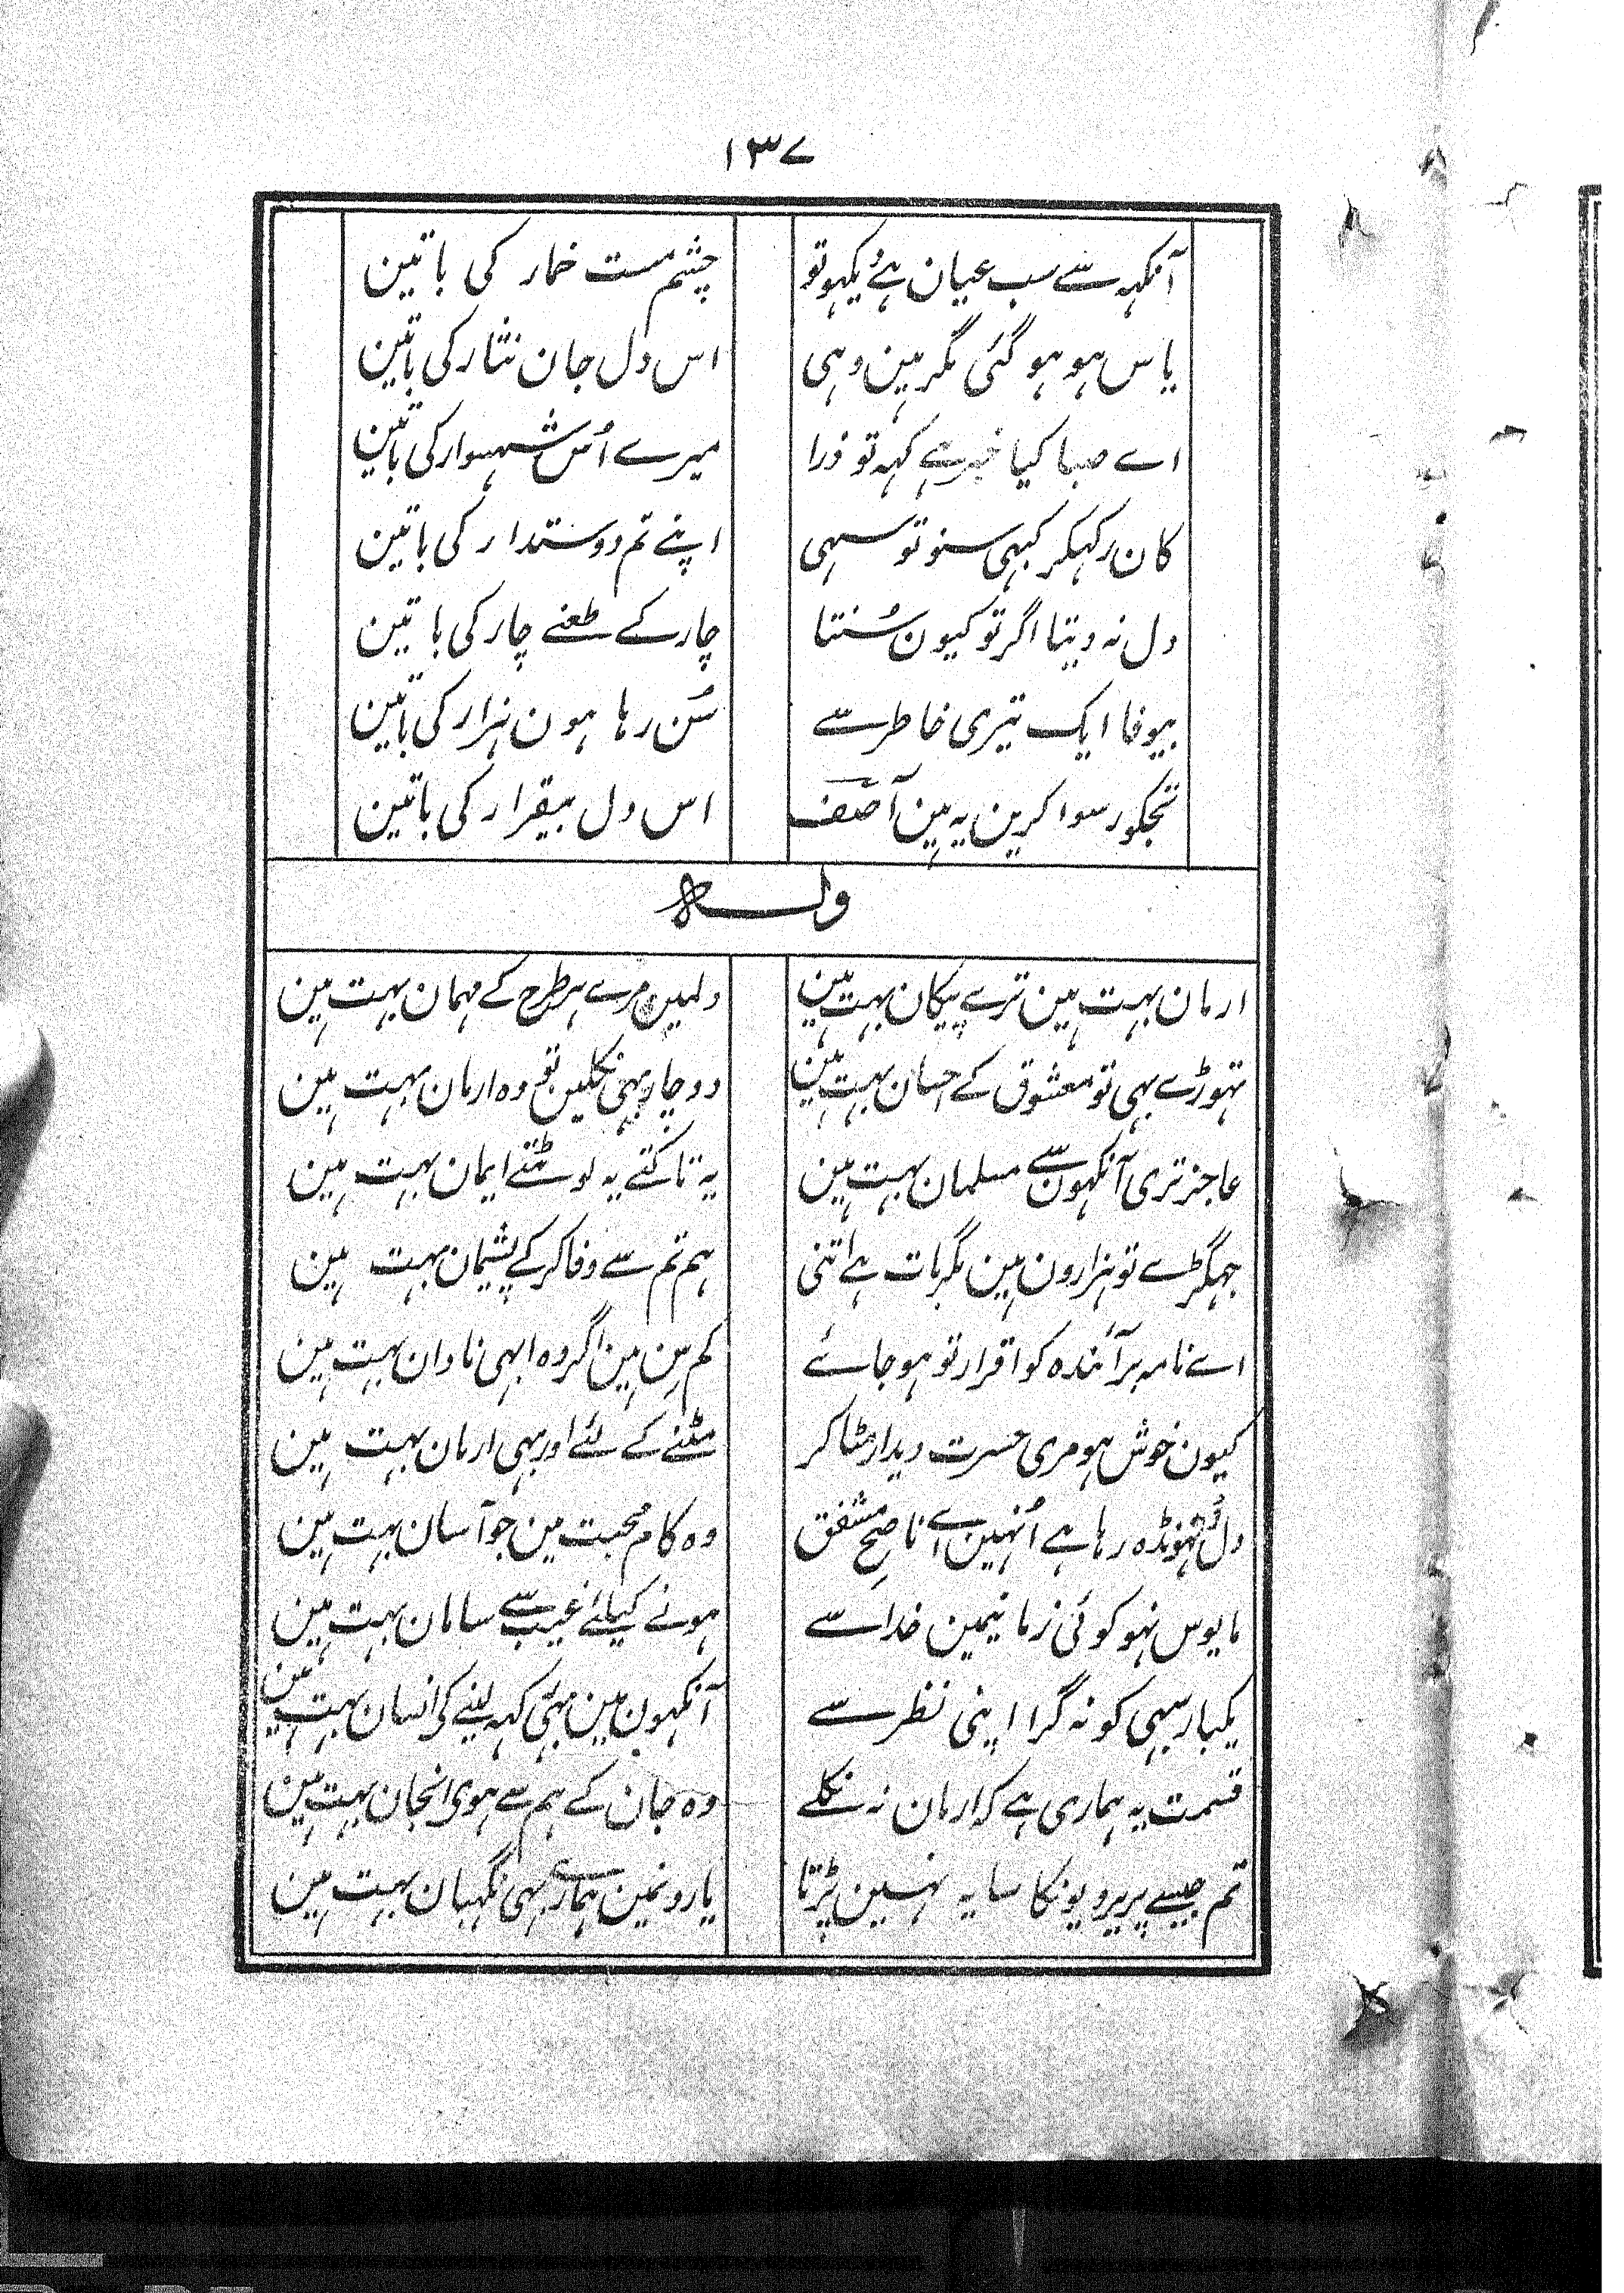 ۱۳۷
آنکہہ سے سب عیان ہے یکہو تو چشم مست خمار کی باتین
یاس ہو ہو گئی مگر ہین وہی اس دل جان نثار کی باتین
اے صبا کیا خبر ہے کہہ تو ذرا میرے اُس شہسوار کی باتین
کان رکہکر کبہی سنو تو سہی اپنے تم دوستدار کی باتین
دل نہ دیتا اگر تو کیون سُنتا چار کے طعنے چار کی باتین
بیوفا ایک تیری خاطر سے سُن رہا ہون ہزار کی باتین
تجکو رسوا کرین یہ ہین آصف اس دل بیقرار کی باتین
ولہ
ارمان بہت ہین ترے پیکان بہت ہین دلمین مرے ہر طرح کے مہمان بہت ہین
تہوڑے بہی تو معشوق کے احسان بہت ہین دو چار بہی نکلین تو وہ ارمان بہت ہین
عاجز تری آنکہون سے مسلمان بہت ہین یہ تاکتے یہ لوٹتے ایمان بہت ہین
جہگڑے تو ہزارون ہین مگر بات ہے اتنی ہم تم سے وفا کر کے پشیمان بہت ہین
اے نامہ بر آئندہ کو اقرار تو ہو جائے کم سِن ہین اگر وہ ابہی نادان بہت ہین
کیون خوش ہو مری حسرت دیدار مٹا کر مٹنے کے لئے اور بہی ارمان بہت ہین
دل ڈہونڈہ رہا ہے اُنہین اے ناصحِ مشفق وہ کام محبت مین جو آسان بہت ہین
مایوس نہو کوئی زمانیمین خدا سے ہونے کیلئے غیب سے سامان بہت ہین
یکبار سبہی کو نہ گرا اپنی نظر سے آنکہون مین بہی کہہ لینے کی انسان بہت ہین
قسمت یہ ہماری ہے کہ ارمان نہ نکلے وہ جان کے ہم سے ہوی انجان بہت ہین
تم جیسے پریرویونکا سایہ نہین پڑتا یارونمین ہمارے بہی نگہبان بہت ہین